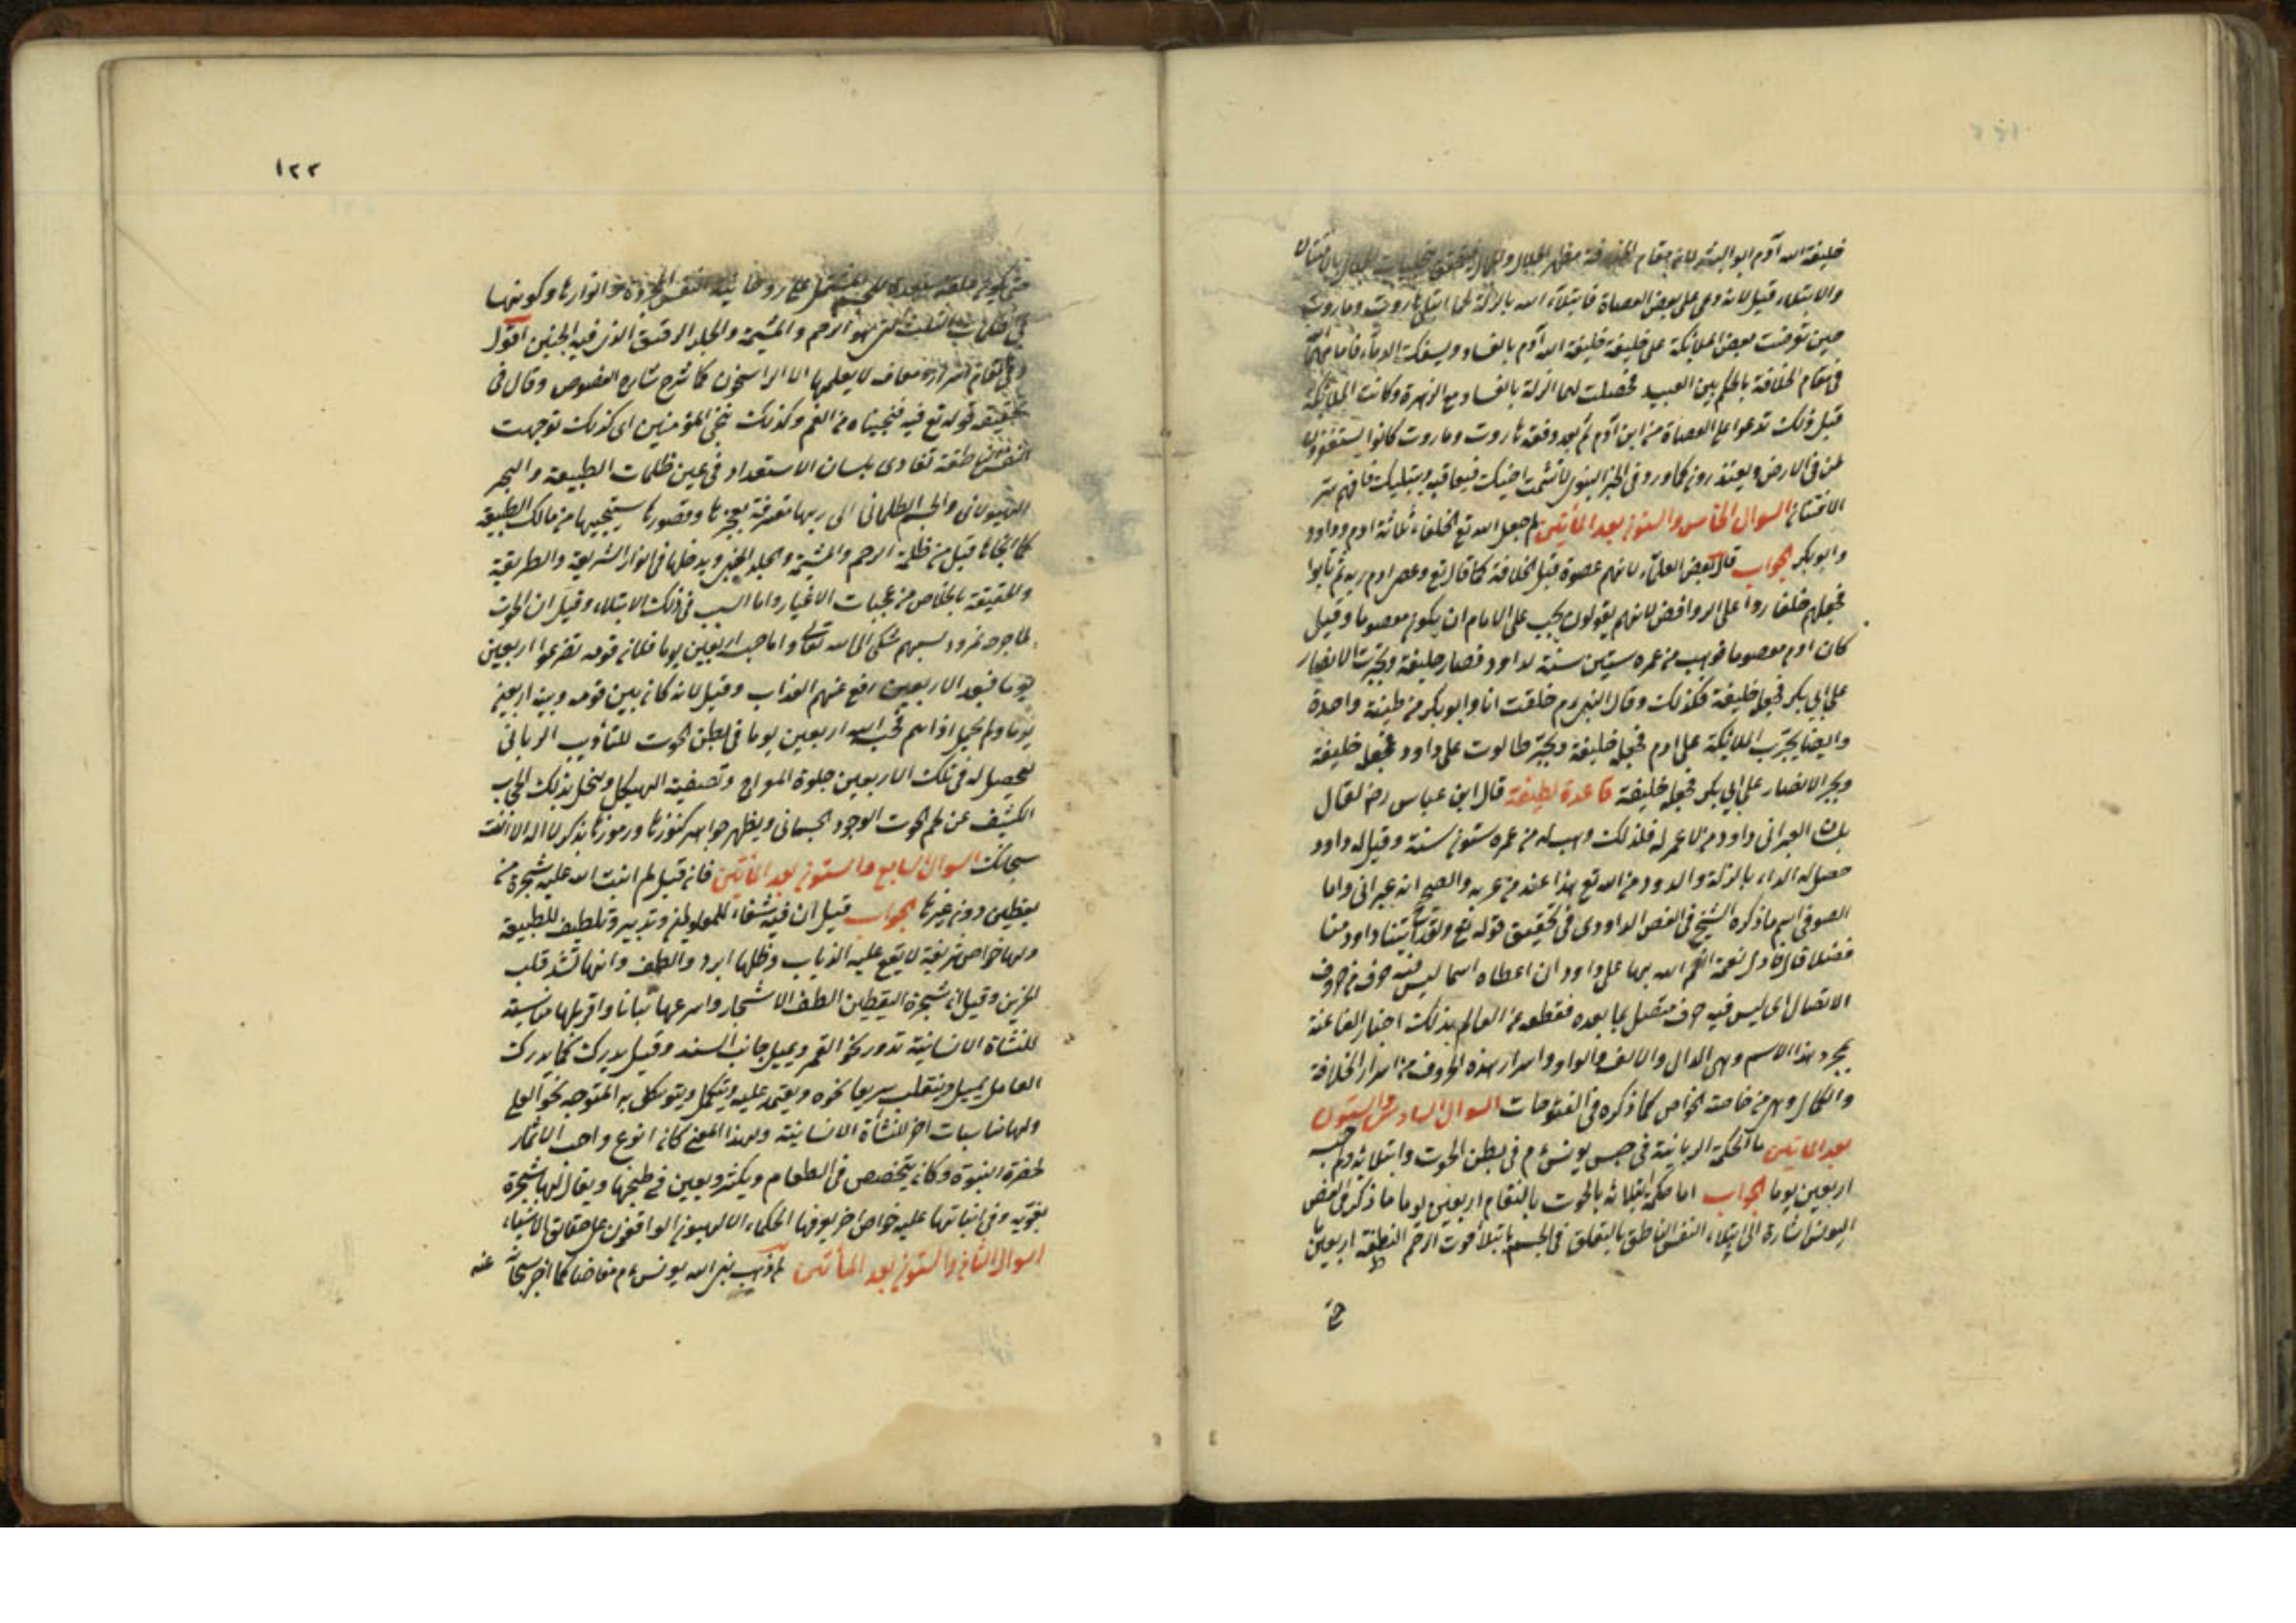 خليفة الله آدم ابو البشر لانه بمقام الخلافة مظهر الجلال والجمال
والابتلاء قيل لانه دعى على بعض العصاة فابتلاه الله بالزلة كما ابتلى هاروت وماروت
حين توقفت بعض الملائكة على خليفة خليفة الله آدم بالفساد ويسفك الدماء فاقامهما
فى مقام الخلافة بالحكم بين العبيد فحصلت لهما الزلة بالفساد مع الزهرة وكانت الملائكة
قبل ذلك تدعوا على العصاة من ابن آدم ثم بعد وقعة هاروت وماروت كانوا يستغفرون
لمن فى الارض ويعتذرون كما ورد فى الخبر النبوى لا تشمت اخيك فيعافيه ويبتليك فافهم سر
الافتتان السؤال الخامس والستون بعد المأتين لم جعل الله تع الخلفاء ثلاثة ادم وداود
وابو بكر الجواب قال بعض العلماء لانهم عصوه قبل الخلافة كما قال تع وعصى ادم ربه ثم تابوا
فجعلهم خلفاء ردا على الروافض لانهم يقولون يجب على الامام ان يكون معصوما وقيل
كان ادم معصوما فوهب من عمره ستين سنة لداود فصار خليفة وتجبرت الانصار
على ابى بكر فجعله خليفة فكذلك وقال النبى ءم خلقت انا وابو بكر من طينة واحدة
وايضا تجبرت الملائكة على ادم فجعله خليفة وتجبر طالوت على داود فجعله خليفة
وتجبر الانصار على ابى بكر فجعله خليفة قاعدة لطيفة قال ابن عباس رضه يقال
بلسان العبرانى داود من لا عمر له فلذلك وهب له من عمره ستون سنة وقيل له داود
حصل له الداء بالزلة والدود من الله تع هذا عند من عربه والصحيح انه عبرانى واما
الصوفى اسم ما ذكره الشيخ فى الفص الداودى فى تحقيق قوله تع ولقد آتينا داود منا
فضلا قال فاول نعمة انعم الله بها على داود ان اعطاه اسما ليس فيه حرف من حروف
الاتصال اى ليس فيه حرف متصل بما بعده فقطعه عن العالم بذلك اخبارا لنا عنه
بمجرد هذا الاسم وهى الدال والالف والواو واسرار هذه الحروف من اسرار الخلافة
والكمال وهى من خاصة الخواص كما ذكره فى الفتوحات السؤال السادس والستون
بعد المأتين ما الحكمة الربانية فى حبس يونس ءم فى بطن الحوت وابتلائه ولم حبسه
اربعين يوما الجواب اما حكمة ابتلائه بالحوت بالتقام اربعين يوما ما ذكر فى الفص
اليونسى اشارة الى ابتلاء النفس الناطق بالتعلق فى الجسم بابتلاء حوت الرحم النطفة اربعين
حتى
١٢٢
حتى يكون علقة مستعدة للجسم المشتمل على روحانية النفس المجردة وانوارها وكونها
فى ظلمات الثلث التى هو الرحم والمشيمة والجلد الرقيق الذى فيه الجنين اقول
وفى المقام اسرار ومعارف لا يعلمها الا الراسخون كما شرح شارح الفصوص وقال فى
تحقيق قوله تع فيه فنجيناه من الغم وكذلك ننجى المؤمنين اى كذلك توجهت
النفس الناطقة تنادى بلسان الاستعداد فى عين ظلمات الطبيعة والبحر
الهيولانى والجسم الظلمانى الى ربها معترفة بعجزها وقصورها ستنجيها من مالك الطبيعة
كما انجاها قبل من ظلمة الرحم والمشيمة والجلد الجنين ويدخلها فى انوار الشريعة والطريقة
والحقيقة بالخلاص من محبات الاغيار واما السبب فى ذلك الابتلاء وقيل ان الحوت
لما جرح نمرود بسهم شكى الى الله تعالى واما حبسه اربعين يوما فلان قومه تضرعوا اربعين
يوما فبعد الاربعين رفع عنهم العذاب وقيل لانه كان بين قومه وبينه اربعين
يوما ولم يحمل اذاهم فحبسه الله اربعين يوما فى بطن الحوت للتأديب الربانى
ليحصل له فى تلك الاربعين جلوة المعراج وتصفية الهيكل وينحل بذلك الحجاب
الكشيف عن طم الحوت الوجود الجسمانى ويظهر جواهر كنوزها ورموزها بذكر لا اله الا انت
سبحانك السؤال السابع والستون بعد المأتين فان قيل لم انبت الله عليه شجرة من
يقطين دون غيرها الجواب قيل ان فيه شفاء للمعلولين وتدبير وتلطيف للطبيعة
ولها خواص شريفة لا يقع عليه الذباب وظلها ابرد والطف وانها تشد قلب
الحزين وقيل ان شجرة اليقطين الطف الاشجار واسرعها نباتا واقربها مناسبة
للنشاة الانسانية تدور نحو القمر ويميل جانب السند وقيل يدرك كما يدرك
العامل يميل وينقلب سريعا نحوه ويعتمد عليه ويتكمل ويتوكل به المتوجه نحو العلى
ولها مناسبات اخر للنشأة الانسانية ولهذا المعنى كان انوع واحب الاثمار
لحضرة النبوة وكان يتخصص فى الطعام ويكثر ويعين فى طبخها ويقال لها شجرة
يقويه وفى انباتها عليه خواص اخر يعرفها الحكماء الالهيون الواقفون على حقائق الاشياء
السؤال الثامن والستون بعد المأتين لم ذهب نبى الله يونس ءم مغاضبا كما اخبر سبحانه عنه